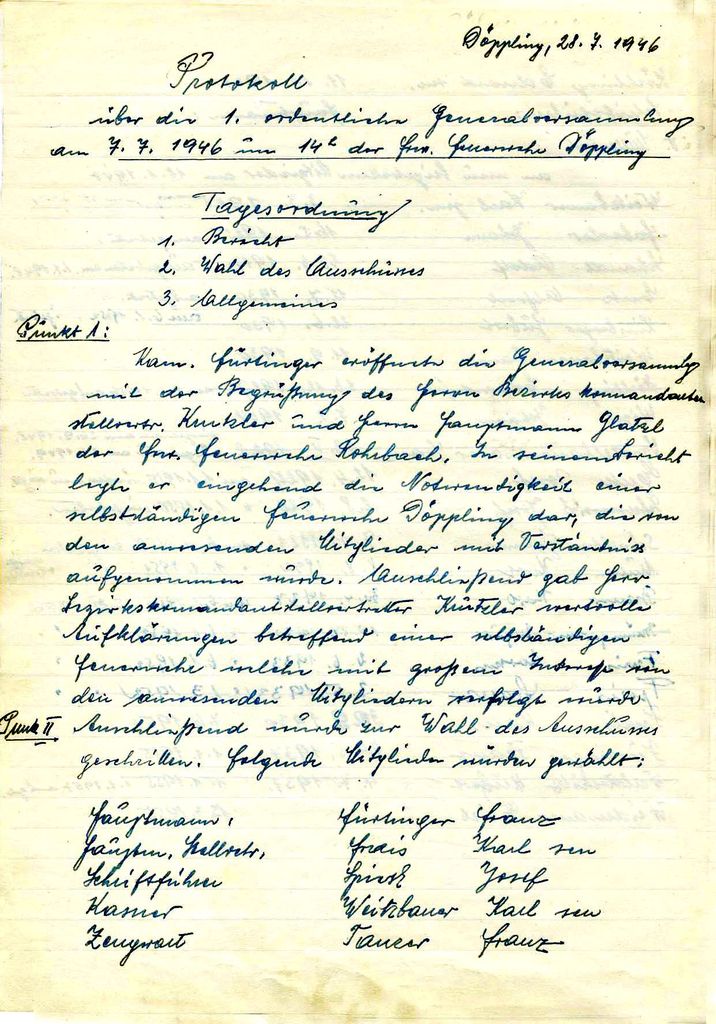 Döppling, 28.7.1946
Protokoll
über die 1. ordentliche Generalversammlung
am 7.7.1946 um 14h der frw. Feuerwehr Döppling
Tagesordnung
1. Bericht
2. Wahl des Ausschusses
3. Allgemeines
Punkt 1:
Kam. Fürtinger eröffnete die Generalversammlg
mit der Begrüßung des Herrn Bezirkskomandanten
stellvertr. Kunzler und Herrn Hauptmann Glatzl
der frw. Feuerwehr Rohrbach. In seinem Bericht
legte er eingehend die Notwendigkeit einer
selbstständigen Feuerwehr Döppling dar, die von
den anwesenden Mitglieder mit Verständniss
aufgenommen wurde. Anschließend gab Herr
Bezirkskomandantstellvertretter wertvolle
Aufklärungen betreffend einer selbständigen
Feuerwehr welche mit großem Interesse von
den anwesenden Mitgliedern verfolgt wurde
Punk II Anschließend wurde zur Wahl des Ausschusses
geschritten. Folgende Mitglieder wurden gewählt:
Hauptmann: Fürtinger Franz
Hauptm. Stellvtr. Frais Karl sen
Schriftführer Josef
Kassier Weitzbauer Karl sen
Zeugwart Tancer Franz